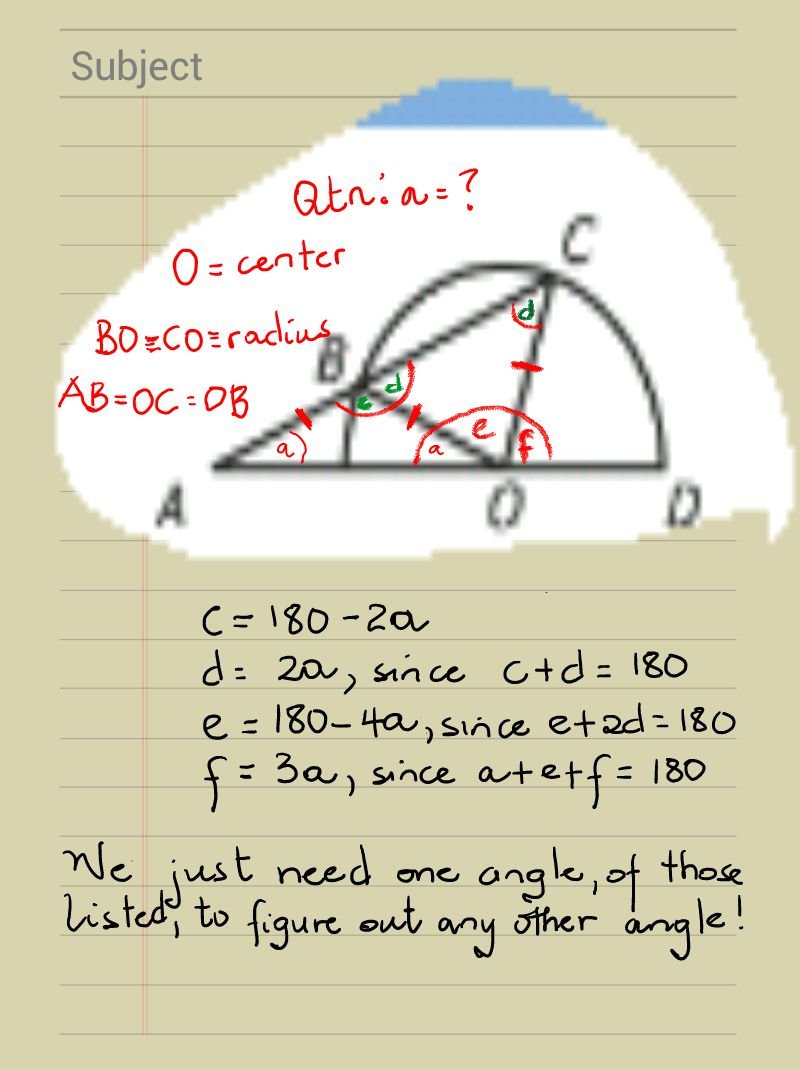 Subject
Qtn: a = ?
O = center
C
BO ≡ CO ≡ radius
B
AB = OC = OB
d
c d
a
a e f
A O D
c = 180 - 2a
d = 2a, since c + d = 180
e = 180 - 4a, since e + 2d = 180
f = 3a, since a + e + f = 180
We just need one angle, of those
listed, to figure out any other angle!